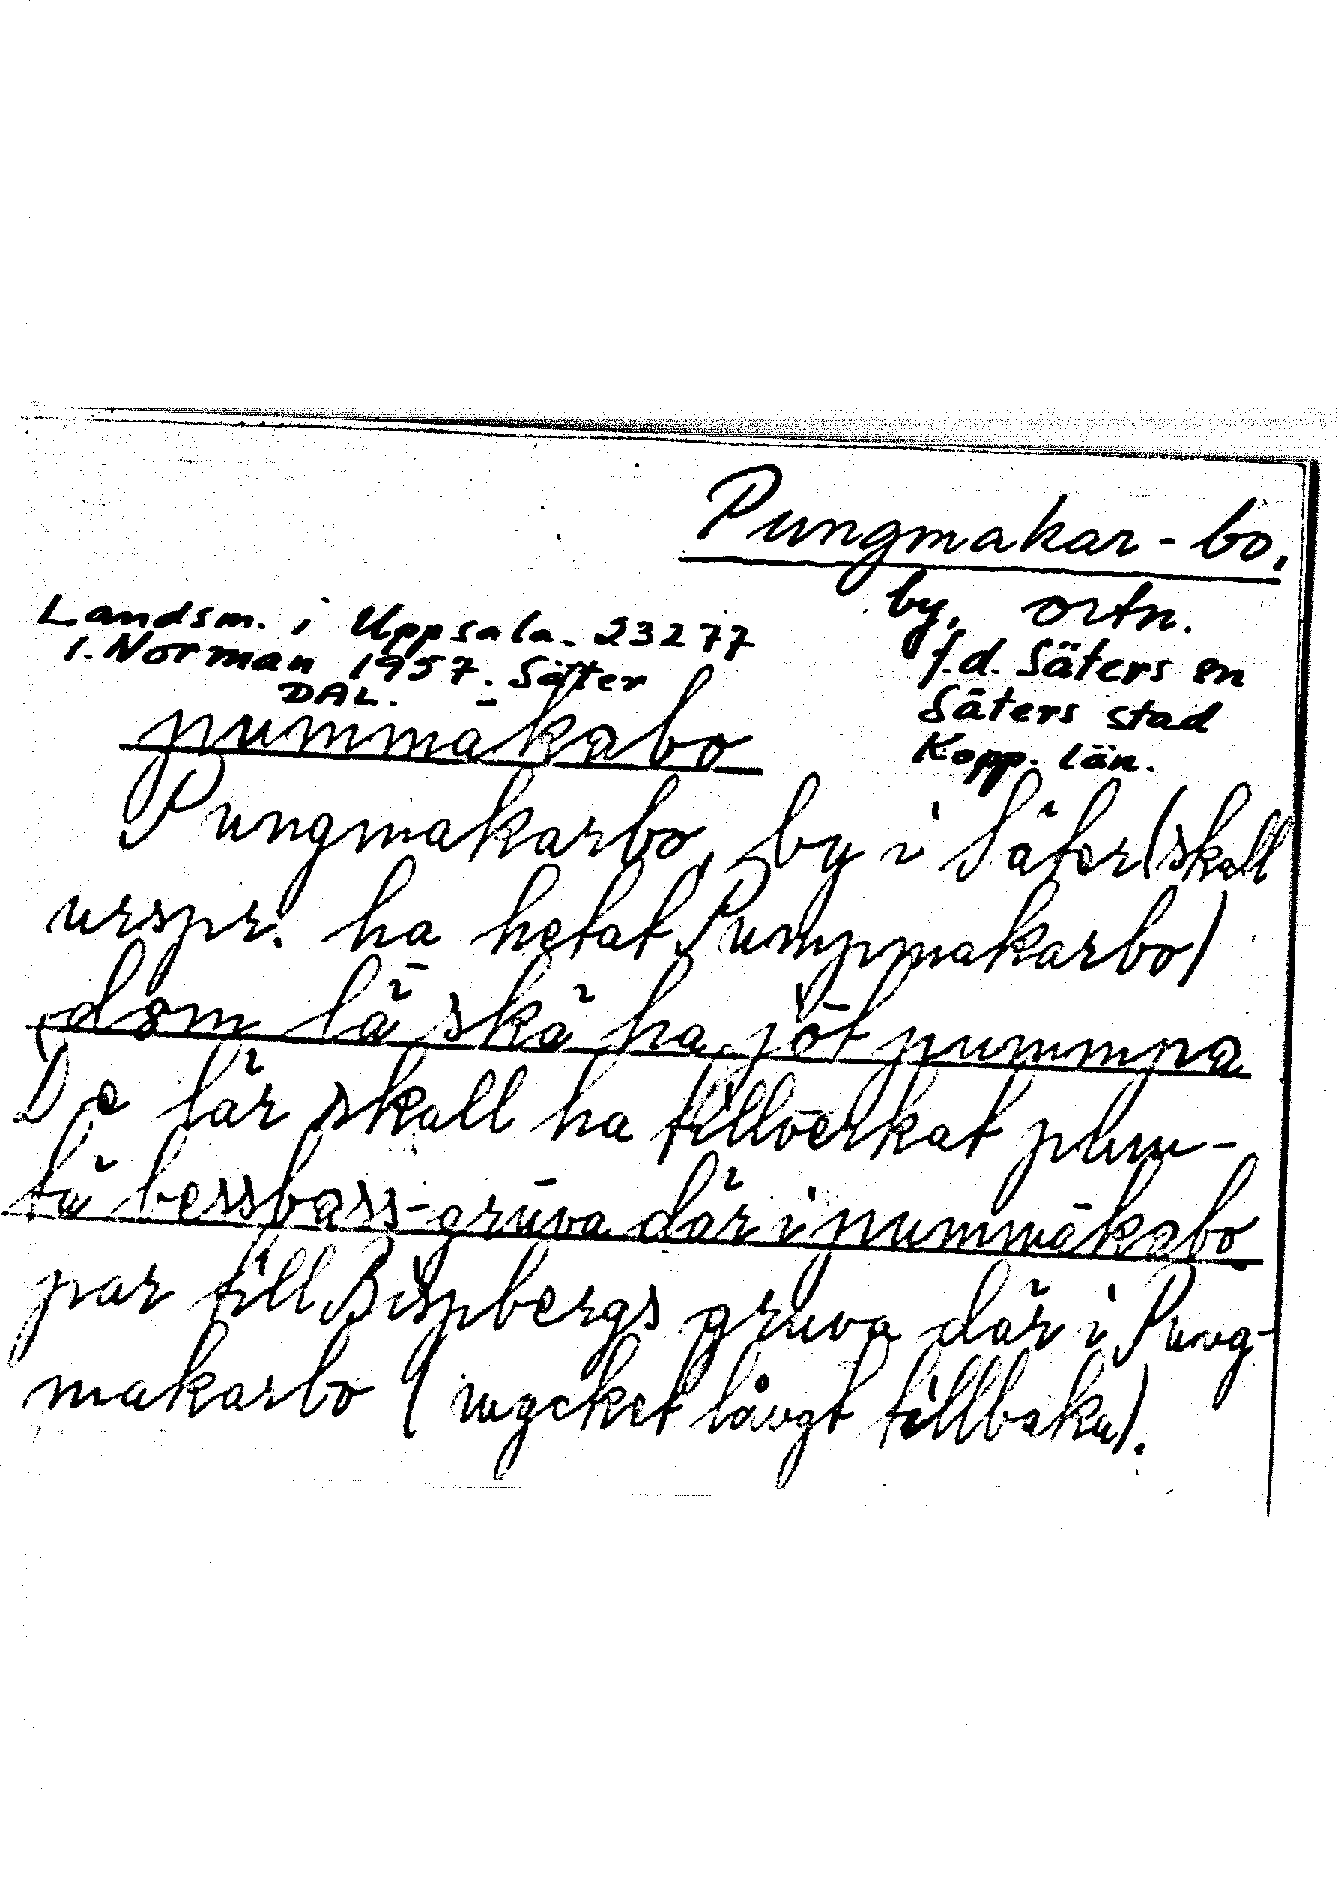 Pungmakar-bo,
by, ortn.
f.d. Säters sn
Säters stad
Kopp. län.
Landsm. i Uppsala. 23277
I. Norman 1957. Säter
DAL.
pummākabo
Pungmakarbo, by i Säter (skall
urspr. ha hetat Pumpmakarbo)
dom lä skä ha jöt pummpa
(De lär skall ha tillverkat pum-
tä bessbass-gruva där i pummākabo
par till Bispbergs gruva där i Pung-
makarbo (mycket långt tillbaka).